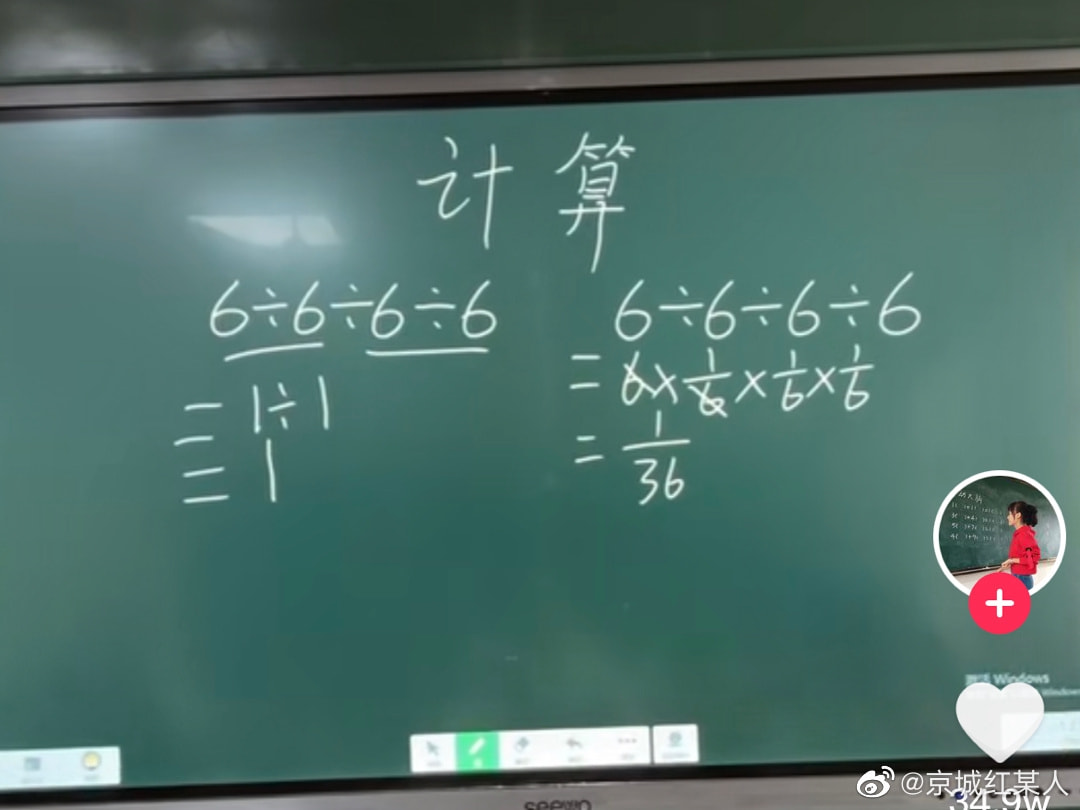 计算
6÷6÷6÷6
=1÷1
=1
6÷6÷6÷6
=6×1/6×1/6×1/6
=1/36
Windows
Windows
seewo
@京城红某人
34.9w